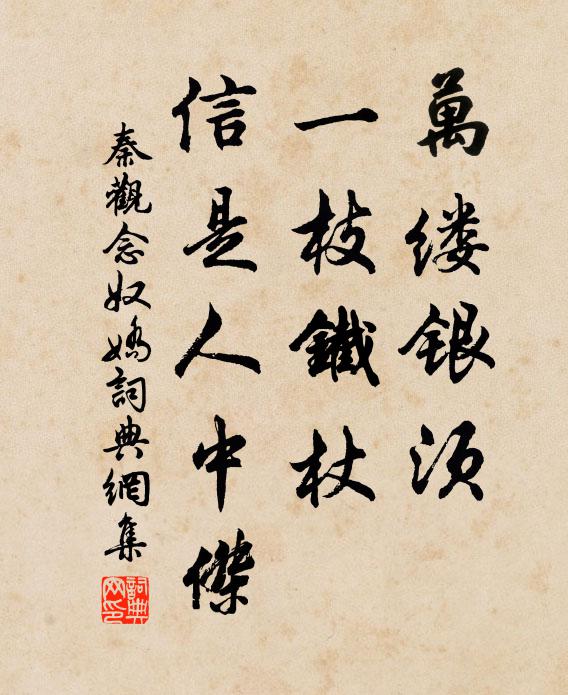 萬缕银须
一枝鐵杖
信是人中傑
秦觀念奴嬌詞典網集
詞典網印